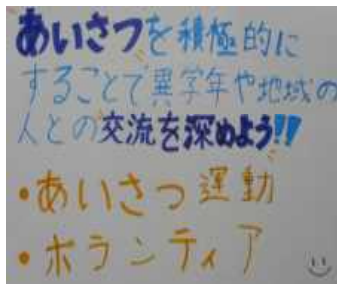 あいさつを積極的に
することで異学年や地域の
人との交流を深めよう!!
・あいさつ運動
・ボランティア